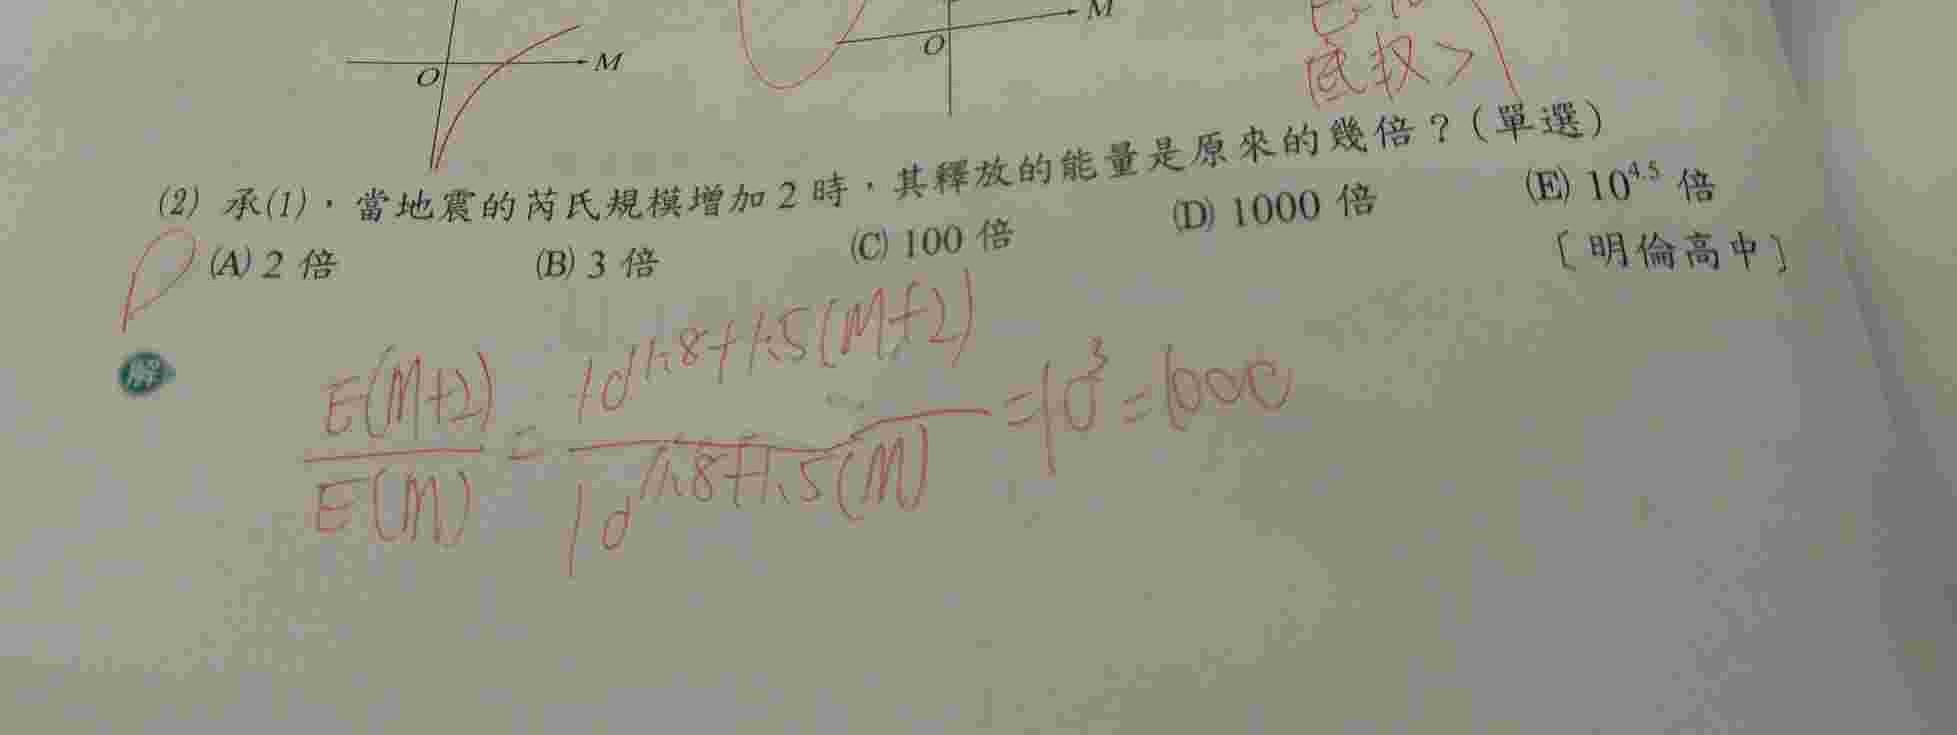 O M
O M
底数>
(2) 承(1),當地震的芮氏規模增加2時,其釋放的能量是原來的幾倍?(單選)
(A) 2 倍 (B) 3 倍 (C) 100 倍 (D) 1000 倍 (E) 10^4.5 倍
D
[明倫高中]
解
E(M+2)/E(M) = 10^11.8+1.5(M+2)/10^11.8+1.5(M) = 10^3 = 1000